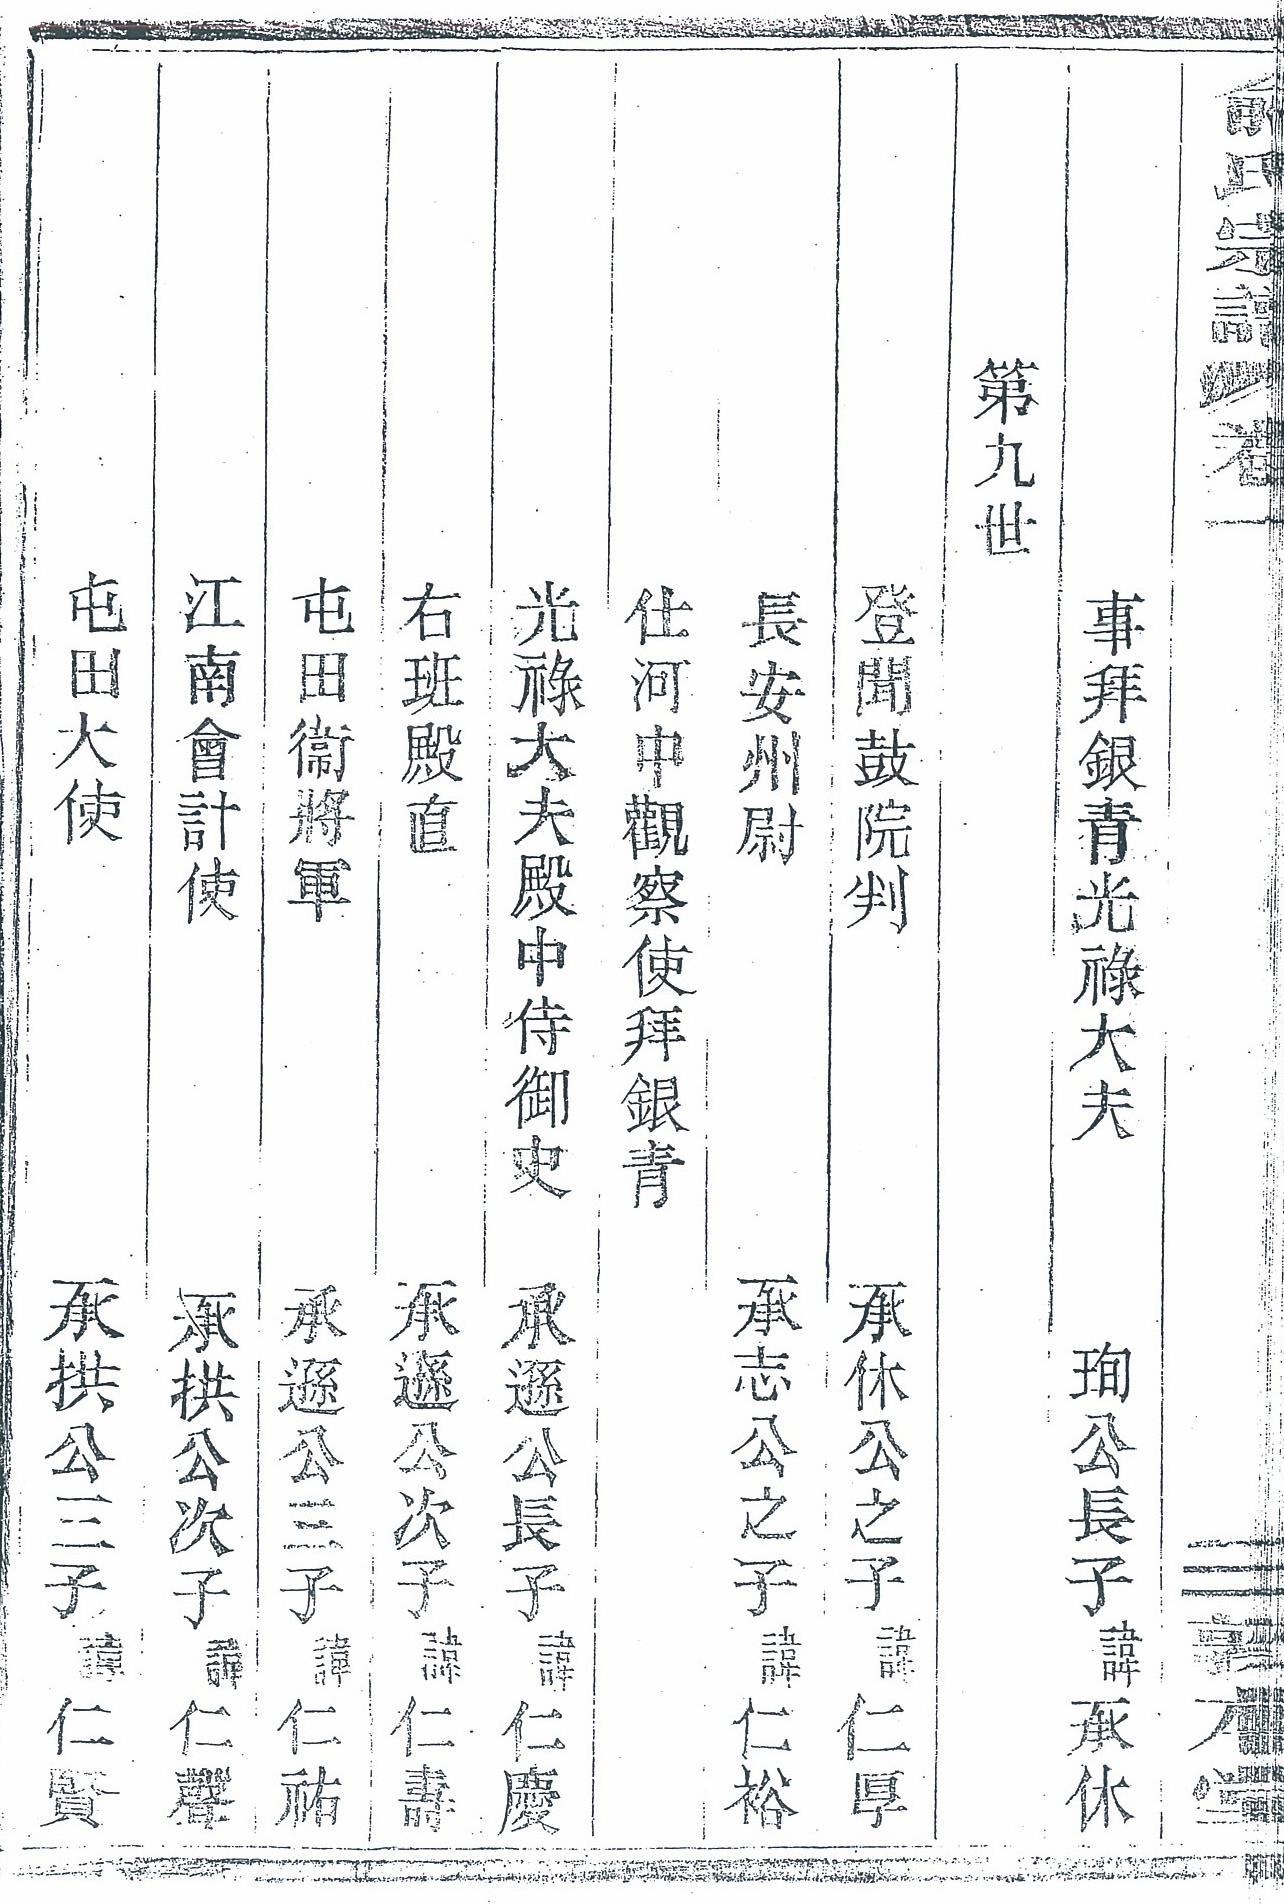 俞氏宗譜 卷一
事拜銀青光祿大夫 珣公長子諱承休
第九世
登聞鼓院判 承休公之子諱仁厚
長安州尉 承志公之子諱仁裕
仕河中觀察使拜銀青
光祿大夫殿中侍御史 承遜公長子諱仁慶
右班殿直 承遜公次子諱仁壽
屯田衞將軍 承遜公三子諱仁祐
江南會計使 承拱公次子諱仁馨
屯田大使 承拱公三子諱仁賢